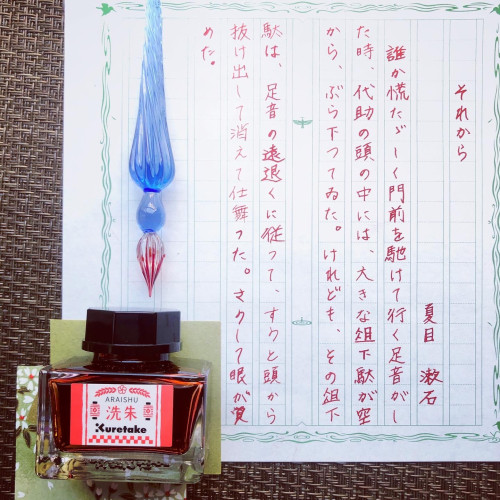 それから
夏目 漱石
誰か慌たゞしく門前を馳けて行く足音がし
た時、代助の頭の中には、大きな俎下駄が空
から、ぶら下つてゐた。けれども、その俎下
駄は、足音の遠退くに従つて、すうと頭から
抜け出して消えて仕舞つた。さうして眼が覚
めた。
ARAISHU
洗朱
Kuretake